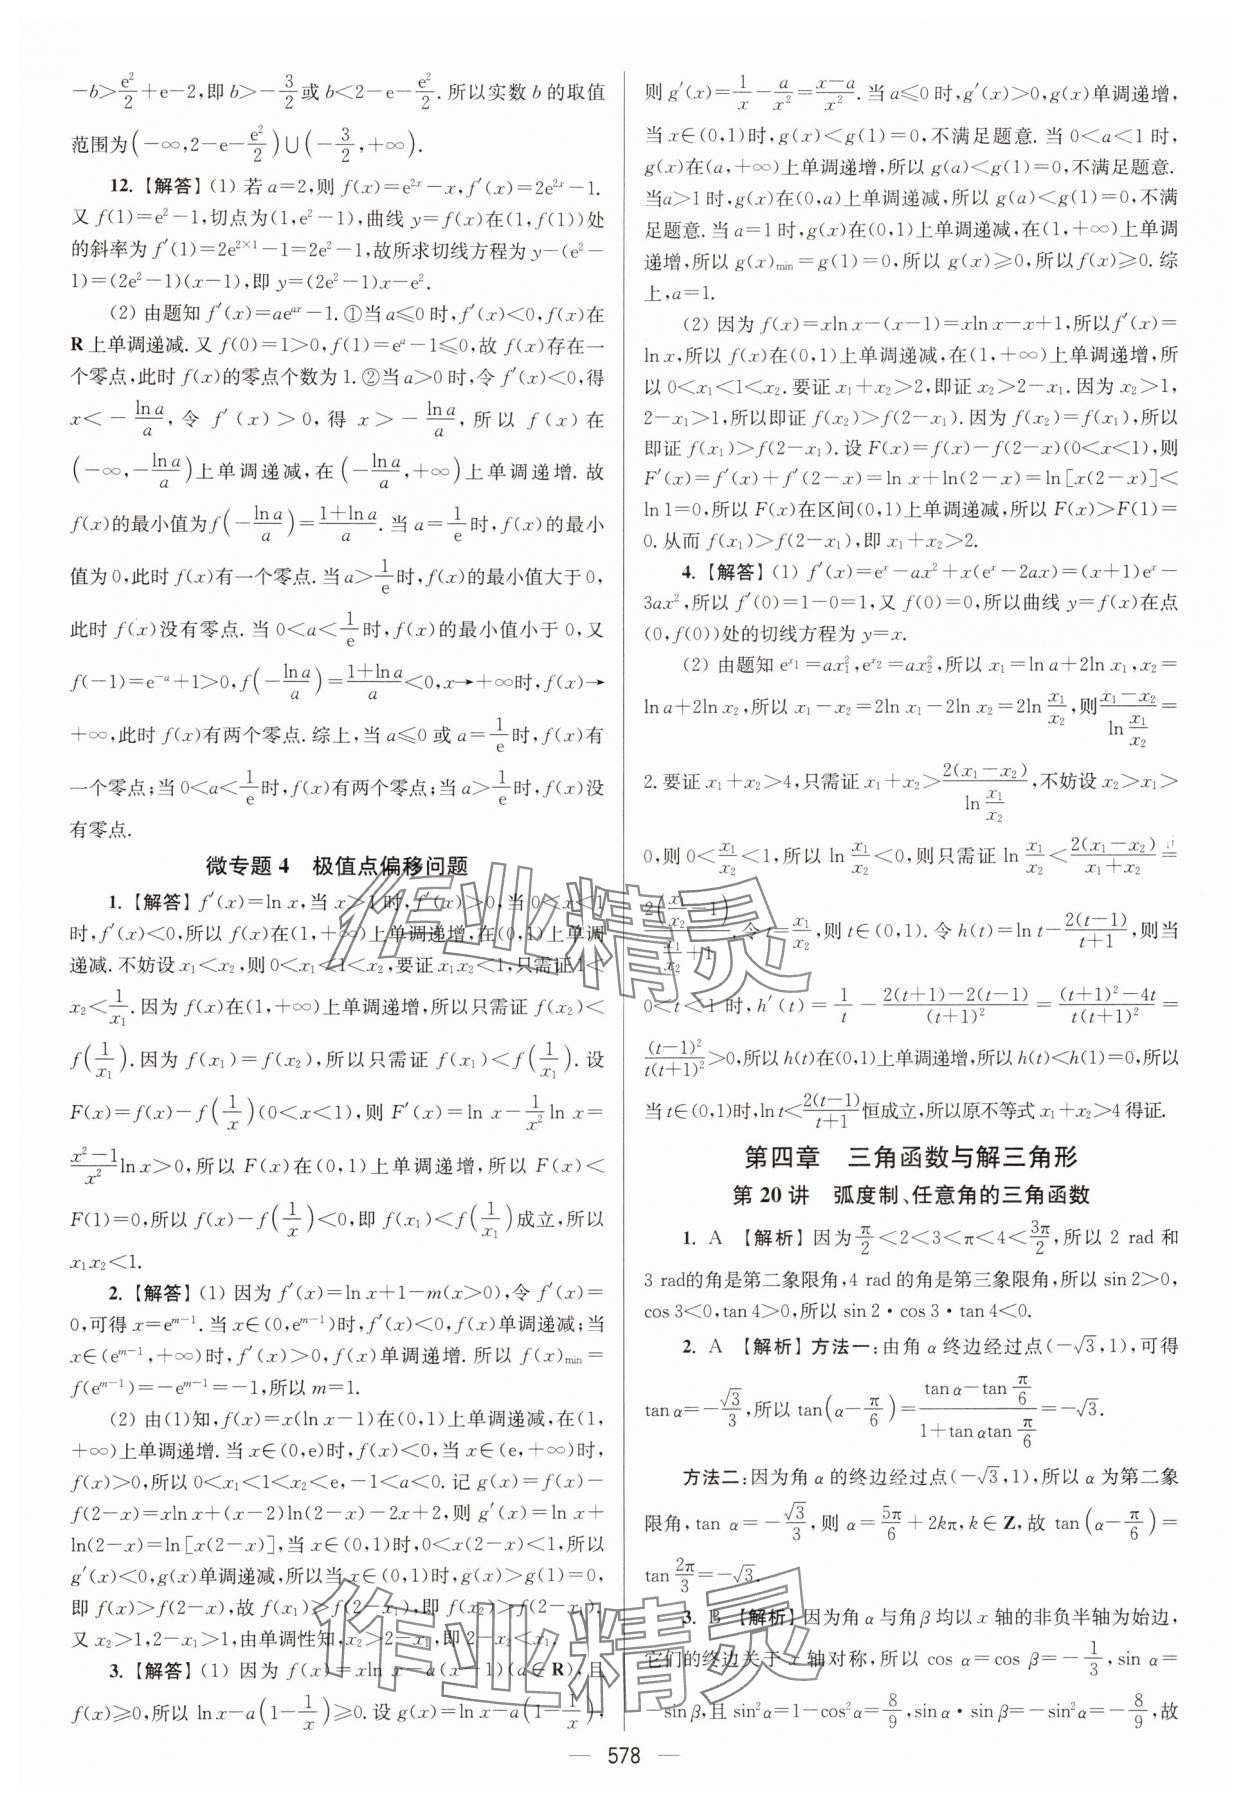 -b>e²/2+e-2,即 b>-3/2或 b<2-e-e²/2.所以实数 b 的取值
范围为(-∞,2-e-e²/2)∪(-3/2,+∞).
12.【解答】(1) 若 a=2,则 f(x)=e²ˣ-x,f′(x)=2e²ˣ-1.
又 f(1)=e²-1,切点为(1,e²-1),曲线 y=f(x)在(1,f(1))处
的斜率为 f′(1)=2e²ˣ¹-1=2e²-1,故所求切线方程为 y-(e²-
1)=(2e²-1)(x-1),即 y=(2e²-1)x-e².
(2) 由题知 f′(x)=aeᵃˣ-1.①当 a≤0 时,f′(x)<0,f(x)在
R 上单调递减.又 f(0)=1>0,f(1)=eᵃ-1≤0,故 f(x)存在一
个零点,此时 f(x)的零点个数为 1.②当 a>0 时,令 f′(x)<0,得
x<-ln a/a,令 f′(x)>0,得 x>-ln a/a,所以 f(x)在
(-∞,-ln a/a)上单调递减,在(-ln a/a,+∞)上单调递增.故
f(x)的最小值为 f(-ln a/a)=(1+ln a)/a.当 a=1/e时,f(x)的最小
值为 0,此时 f(x)有一个零点.当 a>1/e时,f(x)的最小值大于 0,
此时 f(x)没有零点.当 0<a<1/e时,f(x)的最小值小于 0,又
f(-1)=e⁻ᵃ+1>0,f(-ln a/a)=(1+ln a)/a<0,x→+∞时,f(x)→
+∞,此时 f(x)有两个零点.综上,当 a≤0 或 a=1/e时,f(x)有
一个零点;当 0<a<1/e时,f(x)有两个零点;当 a>1/e时,f(x)没
有零点.
微专题 4 极值点偏移问题
1.【解答】f′(x)=ln x,当 x>1 时,f′(x)>0,当 0<x<1
时,f′(x)<0,所以 f(x)在(1,+∞)上单调递增,在(0,1)上单调
递减.不妨设 x₁<x₂,则 0<x₁<1<x₂,要证 x₁x₂<1,只需证 1<
x₂<1/x₁.因为 f(x)在(1,+∞)上单调递增,所以只需证 f(x₂)<
f(1/x₁).因为 f(x₁)=f(x₂),所以只需证 f(x₁)<f(1/x₁).设
F(x)=f(x)-f(1/x)(0<x<1),则 F′(x)=ln x-1/x² ln x=
(x²-1)/x² ln x>0,所以 F(x)在(0,1)上单调递增,所以 F(x)<
F(1)=0,所以 f(x)-f(1/x)<0,即 f(x₁)<f(1/x₁)成立,所以
x₁x₂<1.
2.【解答】(1) 因为 f′(x)=ln x+1-m(x>0),令 f′(x)=
0,可得 x=eᵐ⁻¹.当 x∈(0,eᵐ⁻¹)时,f′(x)<0,f(x)单调递减;当
x∈(eᵐ⁻¹,+∞)时,f′(x)>0,f(x)单调递增.所以 f(x)min=
f(eᵐ⁻¹)=-eᵐ⁻¹=-1,所以 m=1.
(2) 由(1)知,f(x)=x(ln x-1)在(0,1)上单调递减,在(1,
+∞)上单调递增.当 x∈(0,e)时,f(x)<0,当 x∈(e,+∞)时,
f(x)>0,所以 0<x₁<1<x₂<e,-1<a<0.记 g(x)=f(x)-
f(2-x)=xln x+(x-2)ln(2-x)-2x+2,则 g′(x)=ln x+
ln(2-x)=ln[x(2-x)],当 x∈(0,1)时,0<x(2-x)<1,所以
g′(x)<0,g(x)单调递减,所以当 x∈(0,1)时,g(x)>g(1)=0,
即 f(x)>f(2-x),故 f(x₁)>f(2-x₁),即 f(x₂)>f(2-x₁).
又 x₂>1,2-x₁>1,由单调性知,x₂>2-x₁,即 2-x₂<x₁.
3.【解答】(1) 因为 f(x)=xln x-a(x-1)(a∈R),且
f(x)≥0,所以 ln x-a(1-1/x)≥0.设 g(x)=ln x-a(1-1/x),
则 g′(x)=1/x-a/x²=(x-a)/x².当 a≤0 时,g′(x)>0,g(x)单调递增,
当 x∈(0,1)时,g(x)<g(1)=0,不满足题意.当 0<a<1 时,
g(x)在(a,+∞)上单调递增,所以 g(a)<g(1)=0,不满足题意.
当a>1 时,g(x)在(0,a)上单调递减,所以 g(a)<g(1)=0,不满
足题意.当 a=1 时,g(x)在(0,1)上单调递减,在(1,+∞)上单调
递增,所以 g(x)min=g(1)=0,所以 g(x)≥0,所以 f(x)≥0.综
上,a=1.
(2) 因为 f(x)=xln x-(x-1)=xln x-x+1,所以 f′(x)=
ln x,所以 f(x)在(0,1)上单调递减,在(1,+∞)上单调递增,所
以 0<x₁<1<x₂.要证 x₁+x₂>2,即证 x₂>2-x₁.因为 x₂>1,
2-x₁>1,所以即证 f(x₂)>f(2-x₁).因为 f(x₂)=f(x₁),所以
即证 f(x₁)>f(2-x₁).设 F(x)=f(x)-f(2-x)(0<x<1),则
F′(x)=f′(x)+f′(2-x)=ln x+ln(2-x)=ln[x(2-x)]<
ln 1=0,所以 F(x)在区间(0,1)上单调递减,所以 F(x)>F(1)=
0.从而 f(x₁)>f(2-x₁),即 x₁+x₂>2.
4.【解答】(1) f′(x)=eˣ-ax²+x(eˣ-2ax)=(x+1)eˣ-
3ax²,所以 f′(0)=1-0=1,又 f(0)=0,所以曲线 y=f(x)在点
(0,f(0))处的切线方程为 y=x.
(2) 由题知 eˣ¹=ax₁²,eˣ²=ax₂²,所以 x₁=ln a+2ln x₁,x₂=
ln a+2ln x₂,所以 x₁-x₂=2ln x₁-2ln x₂=2ln x₁/x₂,则(x₁-x₂)/(ln x₁/x₂)=
2.要证 x₁+x₂>4,只需证 x₁+x₂>2(x₁-x₂)/(ln x₁/x₂),不妨设 x₂>x₁>
0,则 0<x₁/x₂<1,所以 ln x₁/x₂<0,则只需证 ln x₁/x₂<2(x₁-x₂)/(x₁+x₂)=
2(x₁/x₂-1)/(x₁/x₂+1).令 t=x₁/x₂,则 t∈(0,1).令 h(t)=ln t-2(t-1)/(t+1),则当
0<t<1 时,h′(t)=1/t-[2(t+1)-2(t-1)]/(t+1)²=[(t+1)²-4t]/[t(t+1)²]=
(t-1)²/[t(t+1)²]>0,所以 h(t)在(0,1)上单调递增,所以 h(t)<h(1)=0,所以
当 t∈(0,1)时,ln t<2(t-1)/(t+1)恒成立,所以原不等式 x₁+x₂>4 得证.
第四章 三角函数与解三角形
第 20 讲 弧度制、任意角的三角函数
1. A 【解析】因为π/2<2<3<π<4<3π/2,所以 2 rad 和
3 rad的角是第二象限角,4 rad 的角是第三象限角,所以 sin 2>0,
cos 3<0,tan 4>0,所以 sin 2·cos 3·tan 4<0.
2. A 【解析】方法一:由角 α 终边经过点(-√3,1),可得
tan α=-√3/3,所以 tan(α-π/6)=(tan α-tan π/6)/(1+tan αtan π/6)=-√3.
方法二:因为角 α 的终边经过点(-√3,1),所以 α 为第二象
限角,tan α=-√3/3,则 α=5π/6+2kπ,k∈Z,故 tan(α-π/6)=
tan 2π/3=-√3.
3. B 【解析】因为角 α 与角 β 均以 x 轴的非负半轴为始边,
它们的终边关于 x 轴对称,所以 cos α=cos β=-1/3,sin α=
-sin β,且 sin²α=1-cos²α=8/9,sin α·sin β=-sin²α=-8/9,故
578
作业精灵
作业精灵